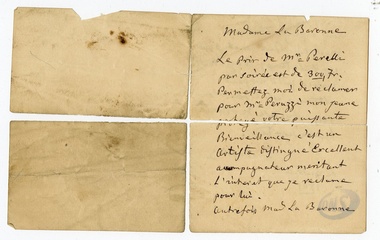 Madame La Baronne
Le prix de Mr Perelli
par soirée est de 300 fr.
Permettez moi de réclamer
pour Mr Peruzzi mon jeune
protégé votre puissante
Bienveillance c'est un
Artiste distingué Excellent
accompagnateur meritant
L'interet que je reclame
pour lui.
autrefois Mad La Baronne